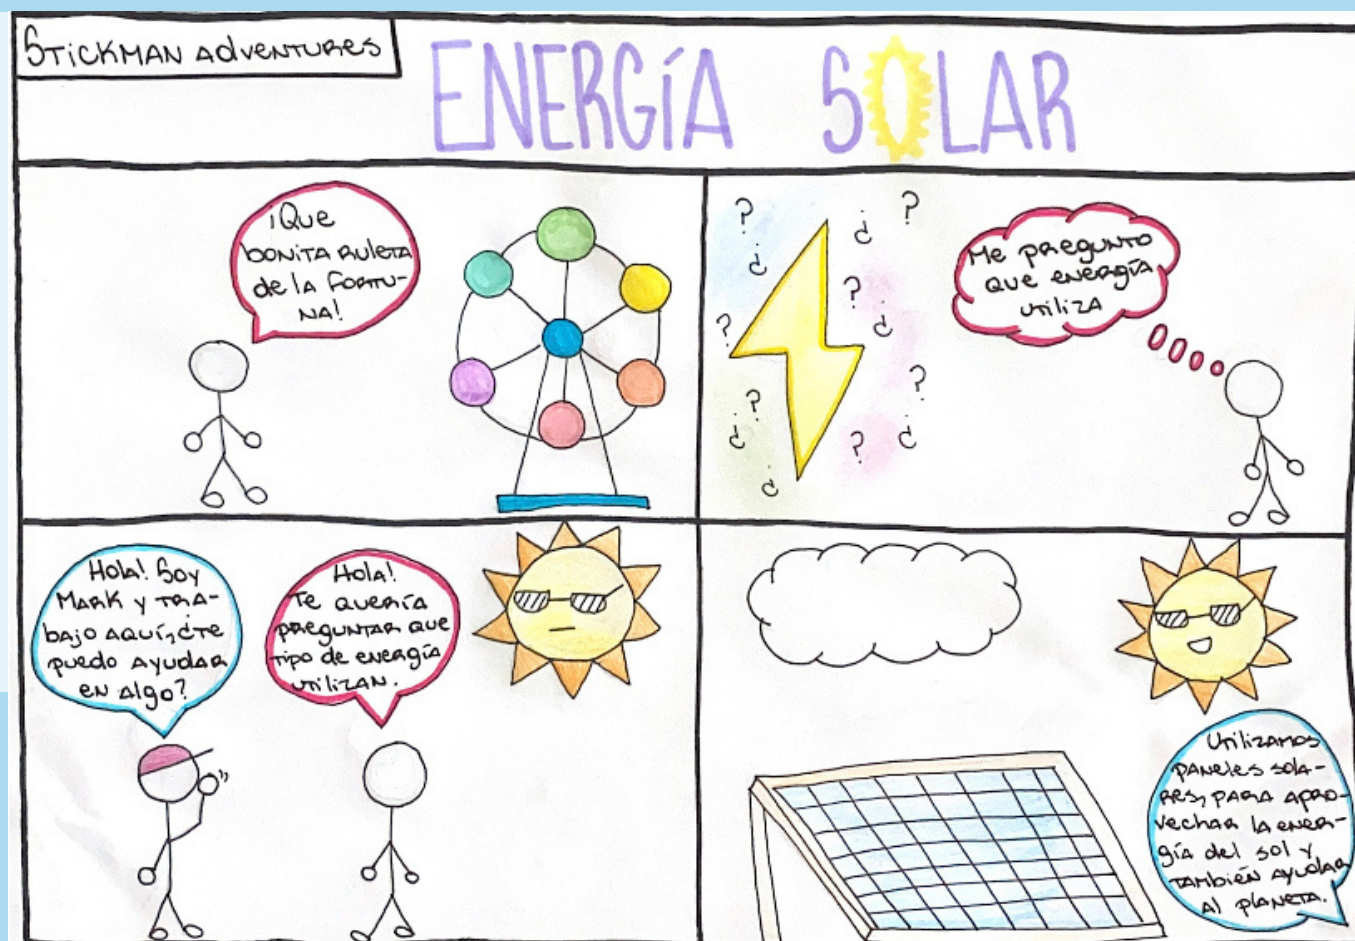 STICKMAN ADVENTURES
ENERGÍA SOLAR
¡Que
bonita ruleta
de la fortu-
na!
? ¿ ? ¿ ? ¿ ? ¿ ? ¿ ? ¿ ? ¿
Me pregunto
que energía
utiliza
Hola! Soy
Mark y tra-
bajo aquí, ¿te
puedo ayudar
en algo?
Hola!
Te quería
preguntar que
tipo de energía
utilizan.
Utilizamos
paneles sola-
res, para apro-
vechar la ener-
gía del sol y
también ayudar
al planeta.